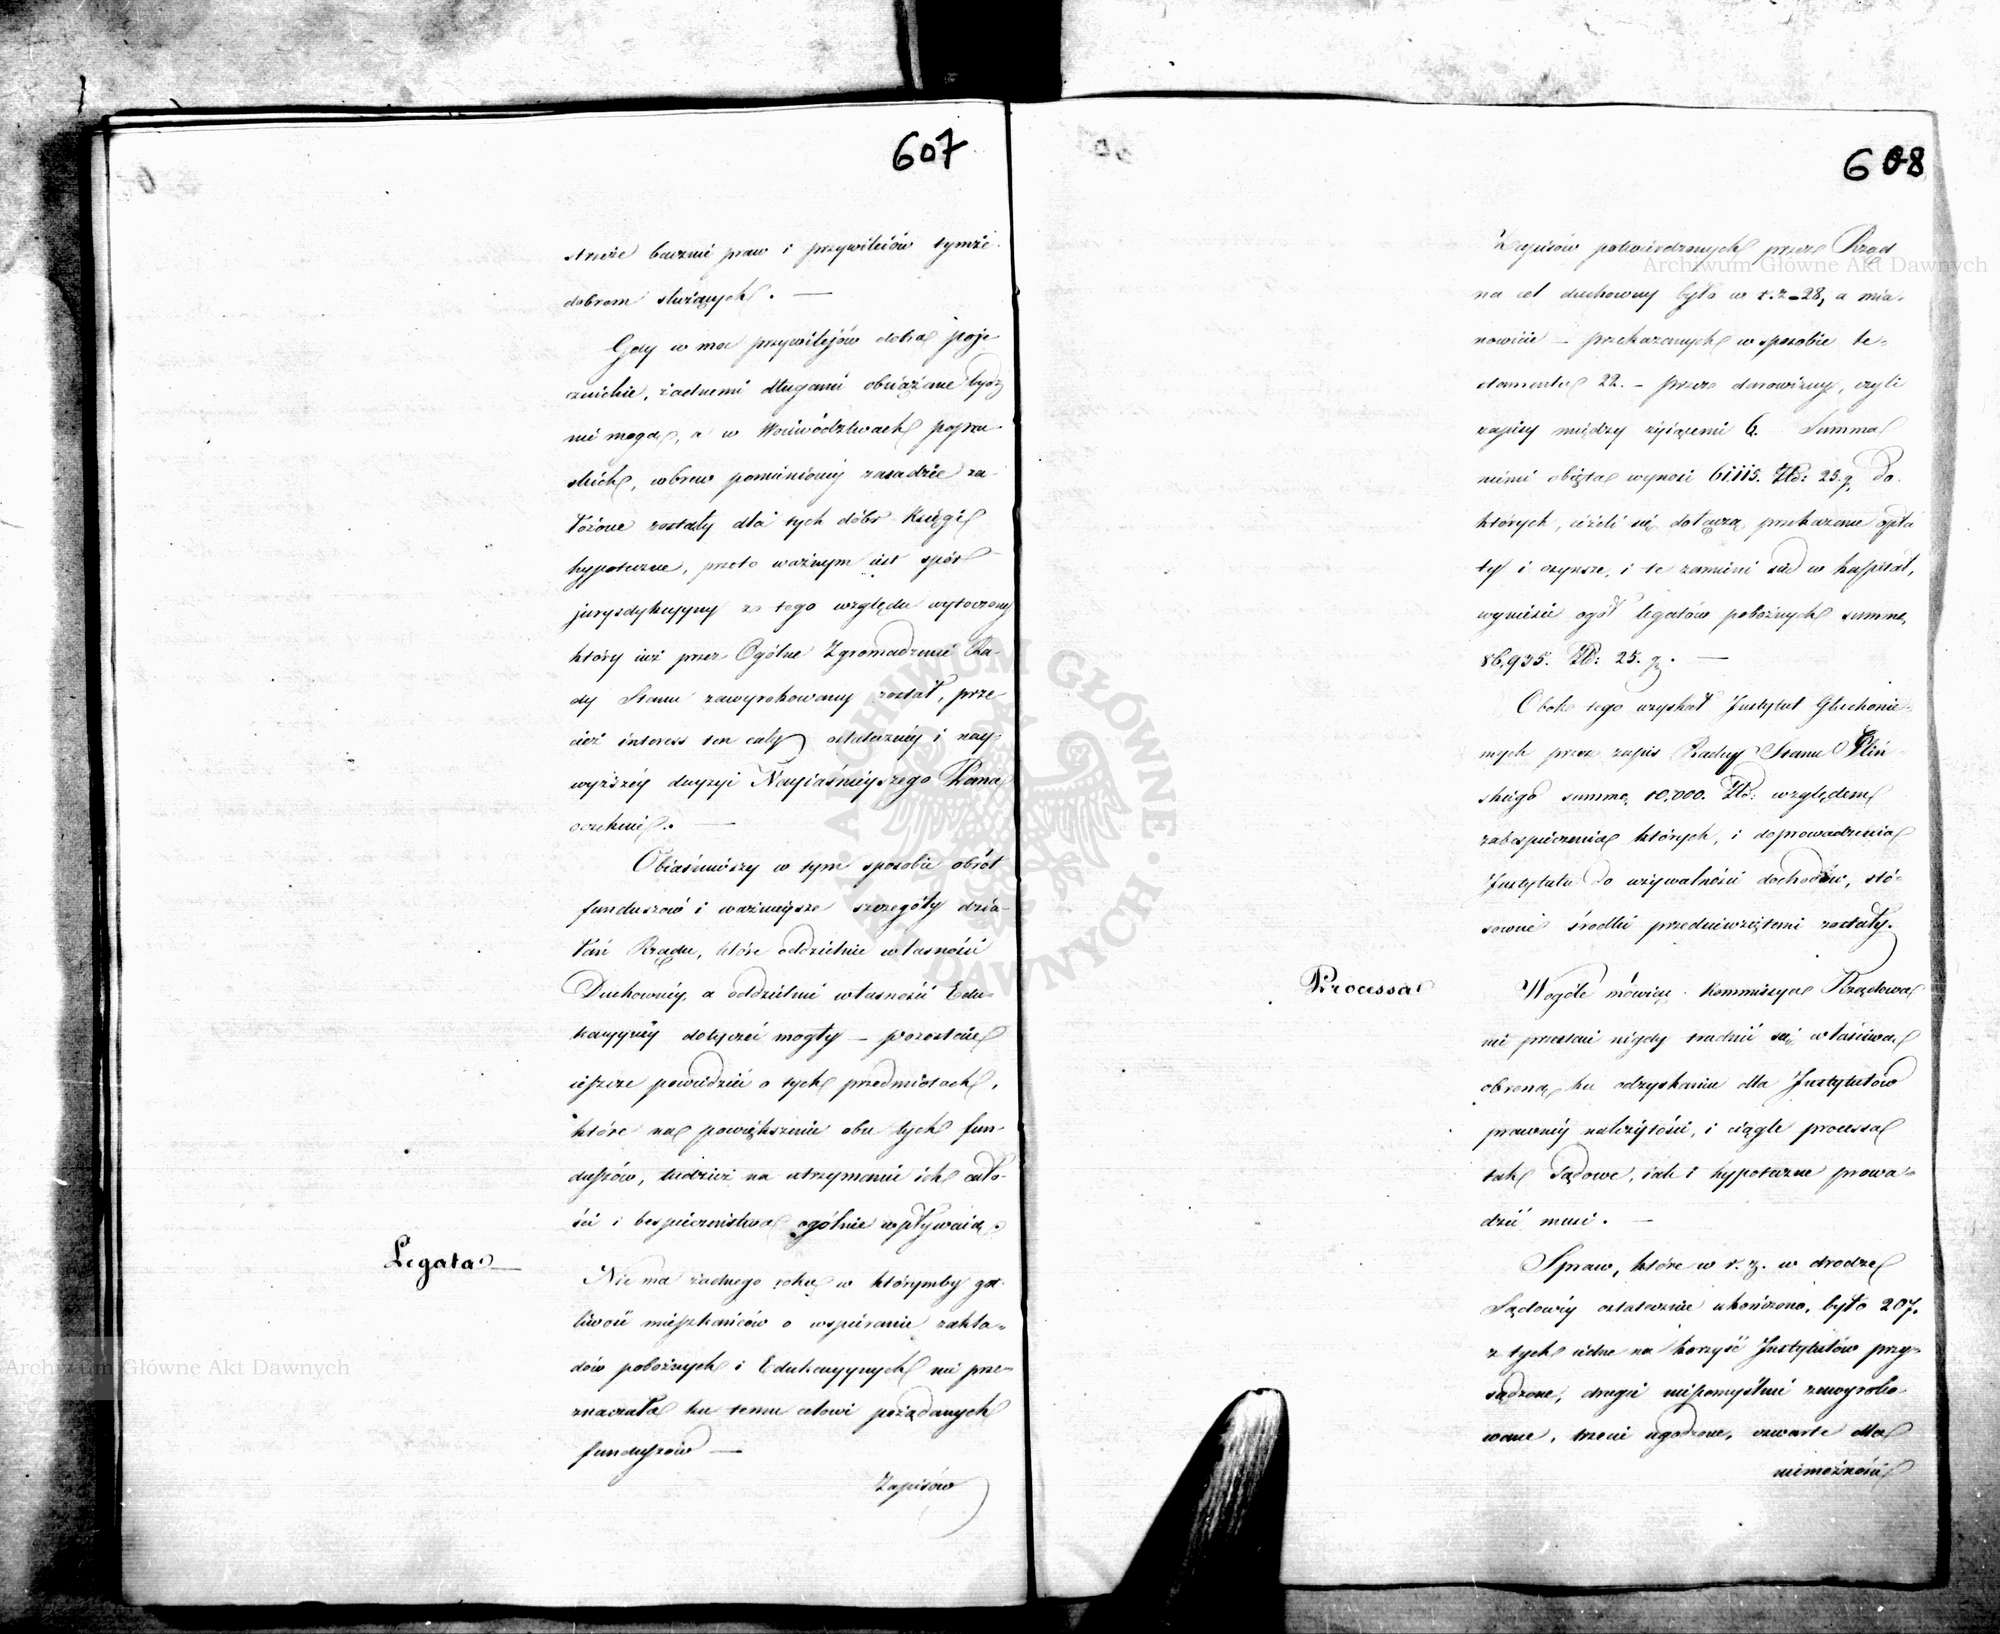 607
strzeże baczni praw i przywileiów tymże
dobrom służących. —
Gdy w moc przywilejów dobra poje-
zuickie, żadnemi długami obciążone bydź
nie mogą, a w Woiewództwach popru-
skich, wbrew pomienioney zasadzie za-
łożone zostały dla tych dóbr Księgi
hypoteczne, przeto ważnym iest spór
jurysdykcyyny z tego względu wytoczony
który iuż przez Ogólne Zgromadzenie Ra-
dy Stanu zawyrokowany został, prze-
cież interess ten cały ostateczney i nay-
wyższey decyzyi Nayiaśnieyszego Pana
oczekuie. —
Obiaśniwszy w tym sposobie obrót
funduszów i ważnieysze szczegóły dzia-
łań Rządu, które oddzielnie własności
Duchowney, a oddzielnie własności Edu-
kacyyney dotyczeć mogły — pozostaie
ieszcze powiedzieć o tych przedmiotach,
które na powiększenie obu tych fun-
duszów, tudzież na utrzymanie ich cało-
ści i bespieczeństwa ogólnie wpływaią.
Legata —
Nie ma żadnego roku w którymby gor-
liwość mieszkańców o wspieranie zakła-
dów pobożnych i Edukacyynych nie prze-
znaczała ku temu celowi pożądanych
funduszów —
Zapisów
608
Zapisów potwierdzonych przez Rząd
na cel duchowny było w r. z. 28, a mia-
nowicie — przekazanych w sposobie te-
stamentu 22. — przez darowizny, czyli
zapisy między żyiącemi 6. Summa
niemi obięta wynosi 61115. Złł: 25. g. Do
których, ieżeli się dołączą przekazane opła-
ty i czynsze, i te zamieni się w kapitał,
wyniesie ogół legatów pobożnych summę
86,935. Złł: 25. g. —
Obok tego uzyskał Instytut Głuchonie-
mych przez zapis Radcy Stanu
skiego summę 10,000. Złł: względem
zabespieczenia których, i doprowadzenia
Instytutu do używalności dochodów, stó-
sowne środki przedsięwziętemi zostały.
Processa
Wogóle mówiąc Kommissya Rządowa
nie przestaie nigdy trudnić się właściwą
obroną ku odzyskaniu dla Instytutów
prawney należytości, i ciągle processa
tak Sądowe, iak i hypoteczne prowa-
dzić musi. —
Spraw, które w r. z. w drodze
Sądowéy ostatecznie ukończono, było 207.
z tych iedne na korzyść Instytutów przy-
sądzone, drugie niepomyślnie zawyroko-
wane, trzecie ugodzone, czwarte dla
niemożności